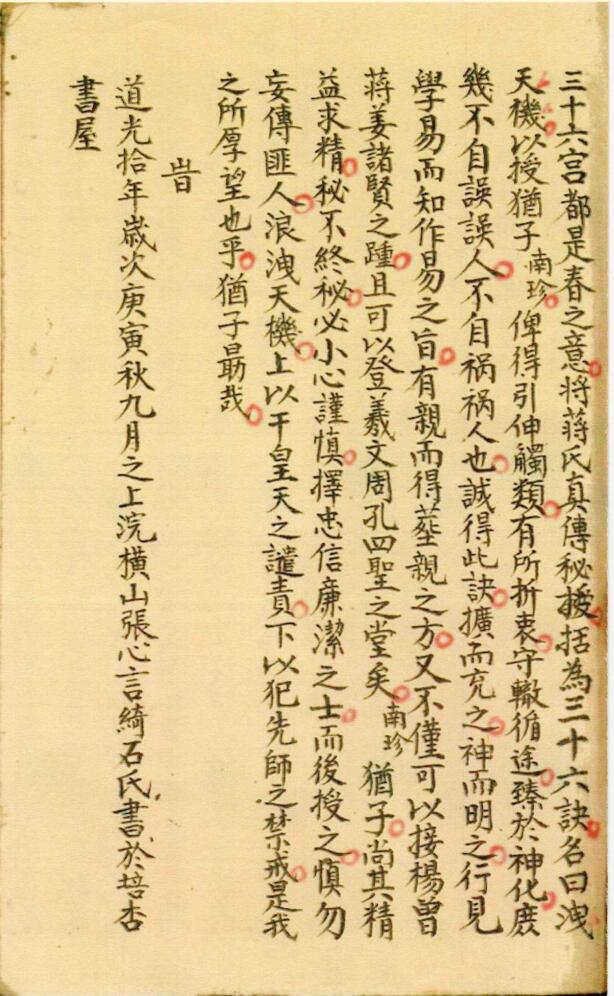 三十六宫都是春之意將蔣氏真傳秘授括為三十六訣名曰洩
天機以授猶子南珍俾得引伸觸類有所折衷守轍循途臻於神化庶
幾不自誤誤人不自禍禍人也誠得此訣擴而充之神而明之行見
學易而知作易之旨有親而得塟親之方又不僅可以接楊曾
蔣姜諸賢之踵且可以登羲文周孔四聖之堂矣南珍猶子尚其精
益求精秘不終秘必小心謹慎擇忠信廉潔之士而後授之慎勿
妄傳匪人浪洩天機上以干皇天之譴責下以犯先師之禁戒是我
之所厚望也乎猶子勗哉
旹
道光拾年歲次庚寅秋九月之上浣橫山張心言綺石氏書於培杏
書屋